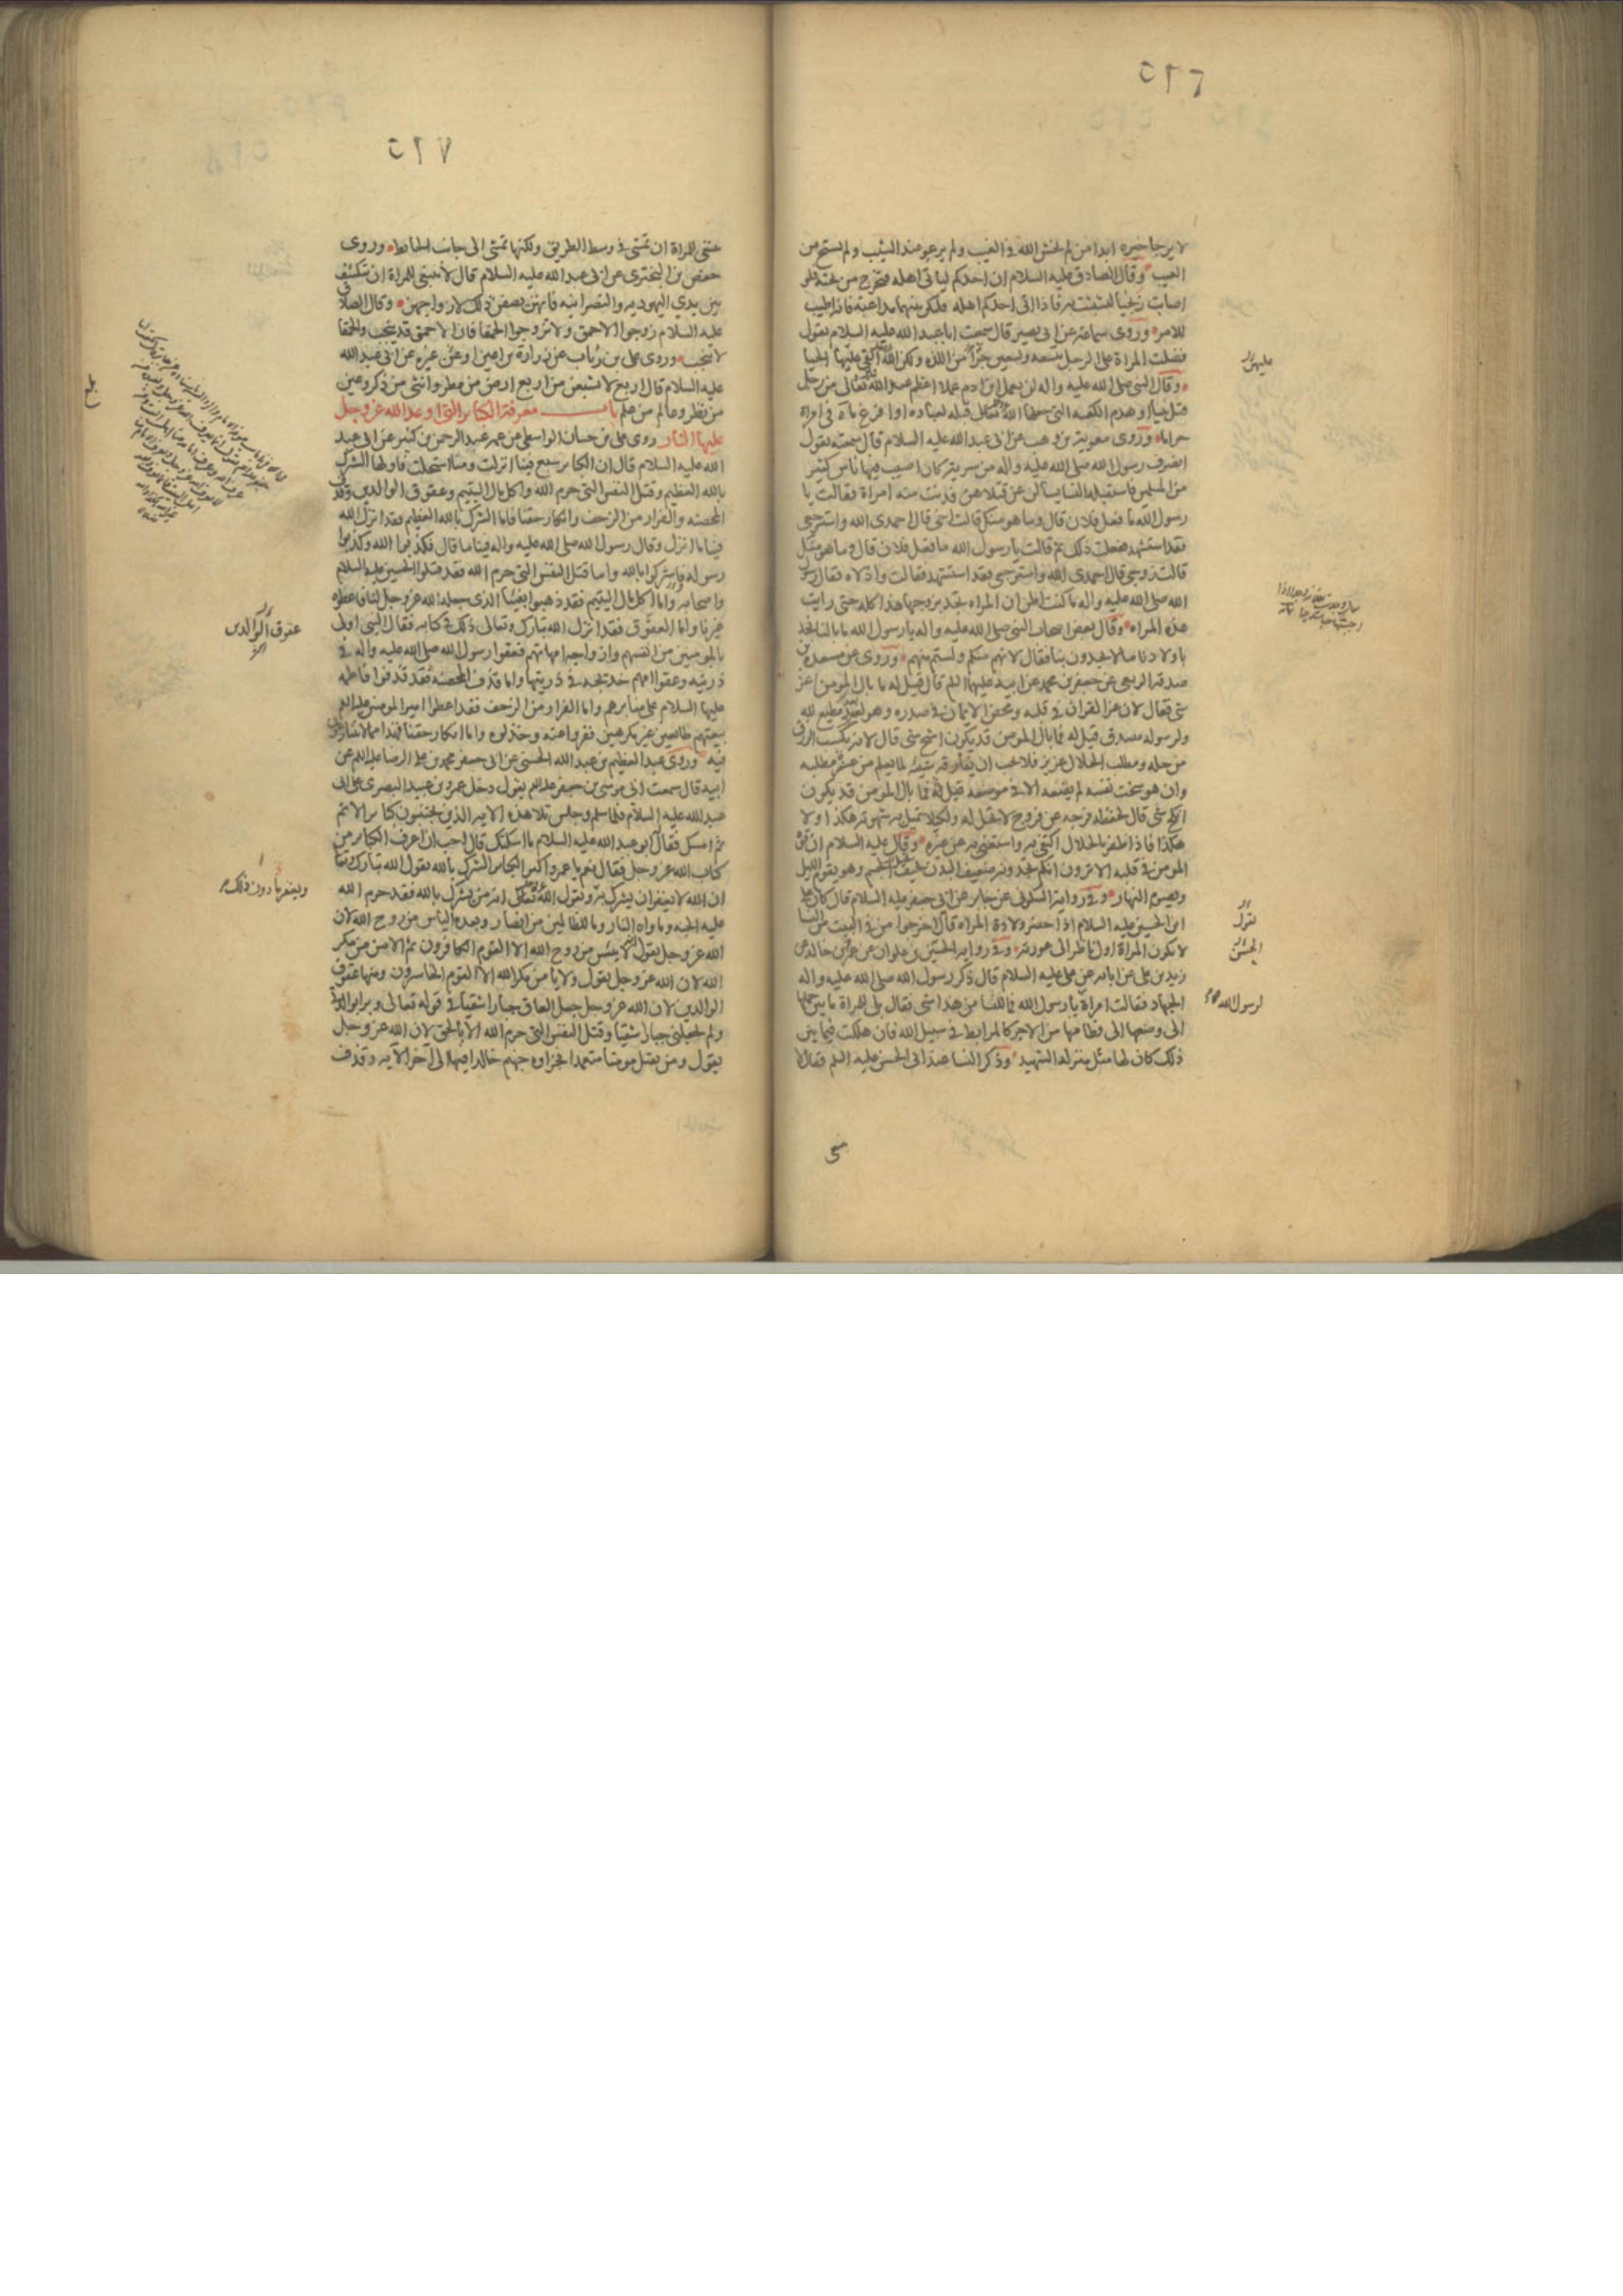 ٥٢٦
لا يرجا خيره ابدا من لم يخش الله في الغيب ولم يرعو عند الشيب ولم يستح من
العيب وقال الصادق عليه السلام ان احدكم لياتي اهله فتخرج من تحته فلو
اصابت زنجيا لتشبثت به فاذا اتى احدكم اهله فليكن بينهما مداعبة فانه اطيب
للامر وروى سماعة عن ابي بصير قال سمعت ابا عبد الله عليه السلام يقول
فضلت المراة على الرجل بتسعة وتسعين جزأ من اللذه ولكن الله القى عليها الحيا
وقال النبي صلى الله عليه واله لن يعمل ابن ادم عملا اعظم عند الله تعالى من رجل
قتل نبيا او هدم الكعبه التي جعلها الله تعالى قبلة لعباده او افرغ ماه في امراة
حراما وروى معوية بن وهب عن ابي عبد الله عليه السلام قال سمعته يقول
انصرف رسول الله صلى الله عليه واله من سرية كان اصيب فيها ناس كثير
من المسلمين فاستقبله النسا يسالن عن قتلاهن فدنت منه امراة فقالت يا
رسول الله ما فعل فلان قال وما هو منك قالت اخي قال احمدي الله واسترجعي
فقد استشهد ففعلت ذلك ثم قالت يا رسول الله ما فعل فلان قال وما هو منك
قالت زوجي قال احمدي الله واسترجعي فقد استشهد فقالت واذلاه فقال رسول
الله صلى الله عليه واله ما كنت اظن ان المراه تجد بزوجها هذا كله حتى رايت
هذه المراه وقال بعض اصحاب النبي صلى الله عليه واله يا رسول الله ما بالنا نجد
باولادنا ما لا يجدون بنا فقال لانهم منكم ولستم منهم وروى عن مسعدة بن
صدقة الربعي عن جعفر بن محمد عن ابيه عليهما السلم قال قيل له ما بال المومن اعز
شى فقال لان عز القران في قلبه ومحض الايمان في صدره وهو لعبد مطيع لله
ولرسوله مصدق قيل له فما بال المومن قد يكون اشح شى قال لانه يكسب الرزق
من حله ومطلب الحلال عزيز فلا يحب ان يفارقه شيئه لما يعلم من عسر مطلبه
وان هو سخت نفسه لم يضعه الا في موضعه قيل له فما بال المومن قد يكون
انكح شى قال لحفظه فرجه عن فروج لا تحل له ولكيلا تميل به شهوته هكذا ولا
هكذا فاذا ظفر بالحلال اكتفى به واستغنى به عن غيره وقال عليه السلام ان قوة
المومن في قلبه الا ترون انكم تجدونه ضعيف البدن نحيف الجسم وهو يقوم الليل
ويصوم النهار وفي رواية السكوني عن جابر عن ابي جعفر عليه السلام قال كان علي
ابن الحسين عليه السلام اذا حضر ولادة المراه قال اخرجوا من في البيت من النسا
لا تكون المراة اول ناظر الى عورته وفي رواية الحسين بن علوان عن عمرو بن خالد عن
زيد بن علي عن ابايه عن علي عليه السلام قال ذكر رسول الله صلى الله عليه واله
الجهاد فقالت امراة يا رسول الله فما للنسا من هذا شى فقال بلى للمراة ما بين حملها
الى وضعها الى فطامها من الاجر كالمرابط في سبيل الله فان هلكت فيما بين
ذلك كان لها مثل منزله الشهيد وذكر النسا عند ابي الحسن عليه السلم فقال لا
عليهن
تقول
الحسن
لرسول الله
٥٢٧
ينبغي للمراة ان تمشي في وسط الطريق ولكنها تمشي الى جانب الحايط وروى
حفص بن البختري عن ابي عبد الله عليه السلام قال لا ينبغي للمراة ان تنكشف
بين يدي اليهوديه والنصرانيه فانهن يصفن ذلك لازواجهن وقال الصادق
عليه السلام زوجوا الاحمق ولا تزوجوا الحمقا فان الاحمق قد ينجب والحمقا
لا تنجب وروى علي بن رئاب عن زرارة بن اعين او عن غيره عن ابي عبد الله
عليه السلام قال اربع لا تشبعن من اربع ارض من مطر وانثى من ذكر وعين
من نظر وعالم من علم باب معرفة الكبائر التي اوعد الله عز وجل
عليها النار روى علي بن حسان الواسطي عن عمه عبد الرحمن بن كثير عن ابي عبد
الله عليه السلام قال ان الكبائر سبع فينا انزلت ومنا استحلت فاولها الشرك
بالله العظيم وقتل النفس التي حرم الله واكل مال اليتيم وعقوق الوالدين وقذف
المحصنه والفرار من الزحف وانكار حقنا فاما الشرك بالله العظيم فقد انزل الله
فينا ما انزل وقال رسول الله صلى الله عليه واله فينا ما قال فكذبوا الله وكذبوا
رسوله فاشركوا بالله واما قتل النفس التي حرم الله فقد قتلوا الحسين عليه السلام
واصحابه واما اكل مال اليتيم فقد ذهبوا بفيئنا الذي جعله الله عز وجل لنا فاعطوه
غيرنا واما العقوق فقد انزل الله تبارك وتعالى ذلك في كتابه فقال النبي اولى
بالمومنين من انفسهم وازواجه امهاتهم فعقوا رسول الله صلى الله عليه واله في
ذريته وعقوا امهم خديجه في ذريتها واما قذف المحصنه فقد قذفوا فاطمه
عليها السلام على منابرهم واما الفرار من الزحف فقد اعطوا امير المومنين عليه السلم
بيعتهم طائعين غير مكرهين ففروا عنه وخذلوه واما انكار حقنا فهذا مما لا يتنازعون
فيه وروى عبد العظيم بن عبد الله الحسني عن ابي جعفر محمد بن علي الرضا عليه السلم عن
ابيه قال سمعت ابي موسى بن جعفر عليه السلم يقول دخل عمرو بن عبيد البصري على ابي
عبد الله عليه السلام فلما سلم وجلس تلا هذه الايه الذين يجتنبون كبائر الاثم
ثم امسك فقال ابو عبد الله عليه السلام ما اسكتك قال احب ان اعرف الكبائر من
كتاب الله عز وجل فقال نعم يا عمرو اكبر الكبائر الشرك بالله يقول الله تبارك وتعالى
ان الله لا يغفر ان يشرك به ويقول الله تعالى انه من يشرك بالله فقد حرم الله
عليه الجنه وماواه النار وما للظالمين من انصار وبعده الياس من روح الله لان
الله عز وجل يقول لا ييئس من روح الله الا القوم الكافرون ثم الامن من مكر
الله لان الله عز وجل يقول ولا يامن مكر الله الا القوم الخاسرون ومنها عقوق
الوالدين لان الله عز وجل جعل العاق جبارا شقيا في قوله تعالى وبرا بوالدتي
ولم يجعلني جبارا شقيا وقتل النفس التي حرم الله الا بالحق لان الله عز وجل
يقول ومن يقتل مومنا متعمدا فجزاوه جهنم خالدا فيها الى آخر الآيه وقذف
عقوق الوالدين
ويغفر ما دون ذلك